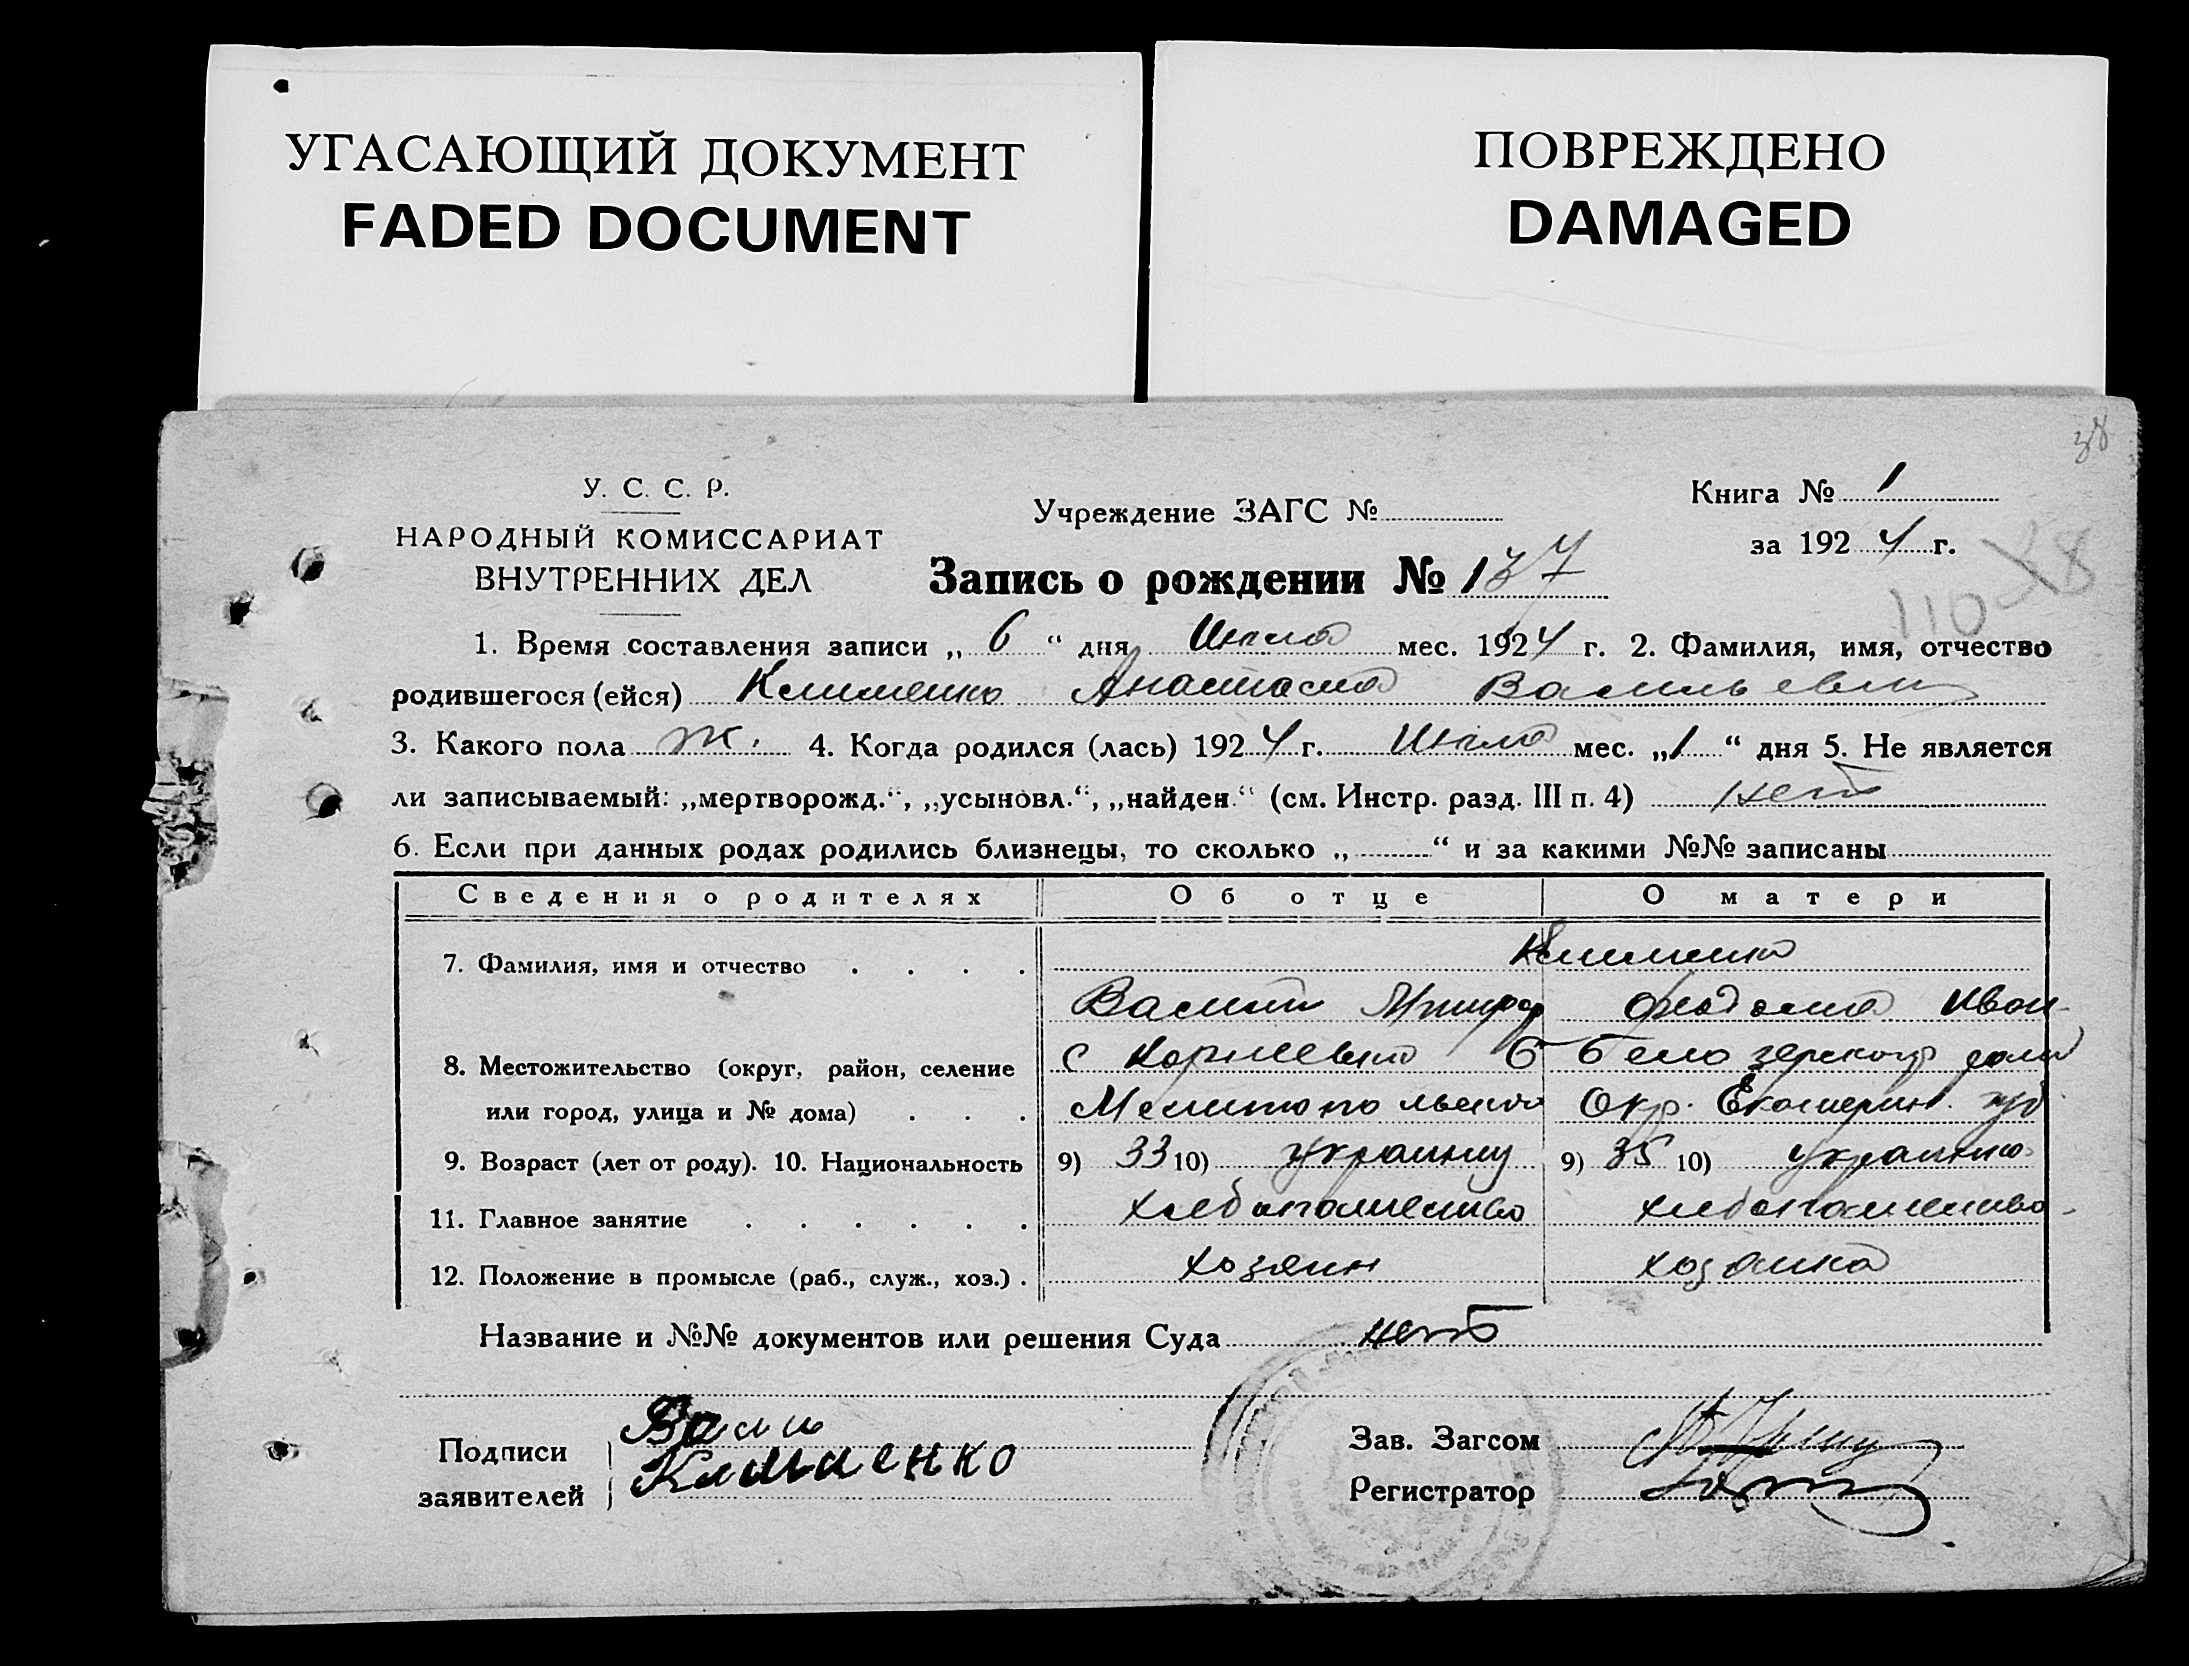 УГАСАЮЩИЙ ДОКУМЕНТ
FADED DOCUMENT
ПОВРЕЖДЕНО
DAMAGED
38
У. С. С. Р.
НАРОДНЫЙ КОМИССАРИАТ
ВНУТРЕННИХ ДЕЛ
Учреждение ЗАГС №
Книга № 1
за 1924 г.
Запись о рождении № 137
110
1. Время составления записи „ 6 “ дня Июля мес. 1924 г. 2. Фамилия, имя, отчество
родившегося (ейся) Клименко Анастасия Васильевна
3. Какого пола ж. 4. Когда родился (лась) 1924 г. Июля мес. „1 “ дня 5. Не является
ли записываемый: „мертворожд.“, „усыновл.“, „найден.“ (см. Инстр. разд. III п. 4) нет
6. Если при данных родах родились близнецы, то сколько „ “ и за какими №№ записаны
Сведения о родителях Об отце О матери
7. Фамилия, имя и отчество Клименко
Васили Феодосия Иван
8. Местожительство (округ, район, селение с Корнеевка Б Белозерского
или город, улица и № дома) Мелитопольского Окр. Екатерин. губ
9. Возраст (лет от роду). 10. Национальность 9) 33 10) украинц 9) 35 10) украинка
11. Главное занятие хлебопашество хлебопашество
12. Положение в промысле (раб., служ., хоз.) хозяин хозяйка
Название и №№ документов или решения Суда нет
Подписи
заявителей
Васили
Клименко
Зав. Загсом
Регистратор